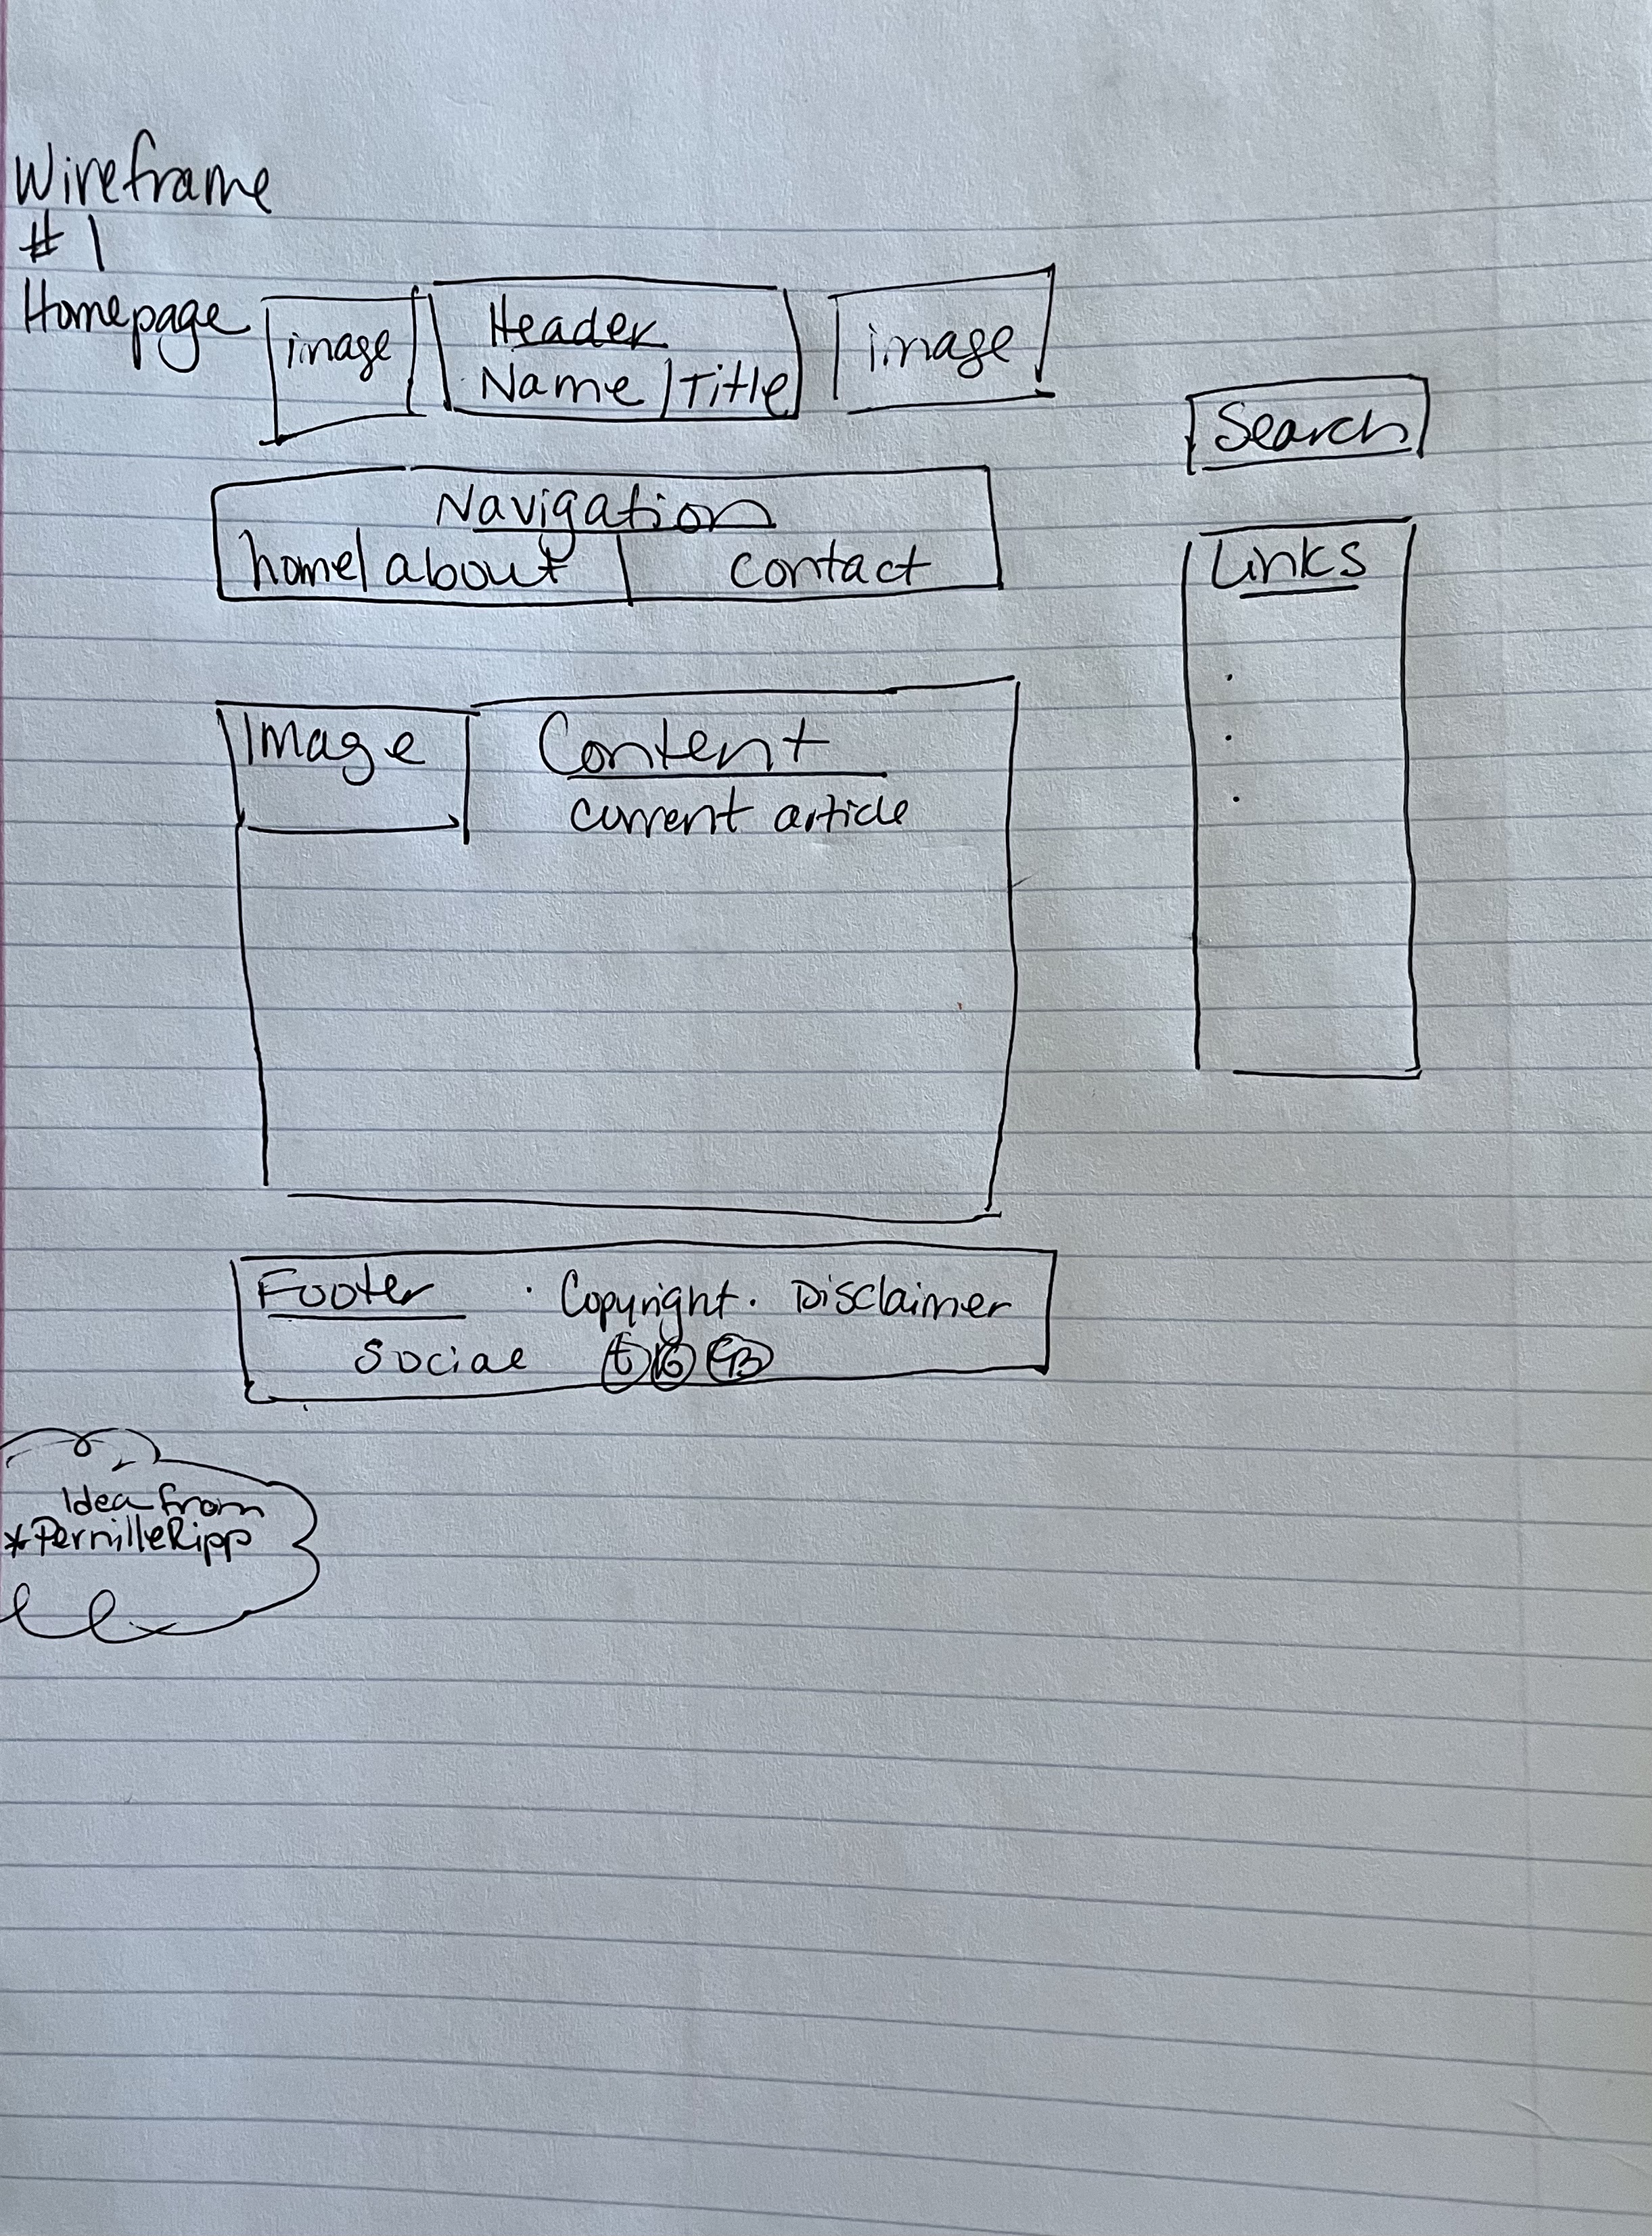 Wireframe
#1
Homepage
image
Header
Name | Title
image
Search
Navigation
home | about | contact
Links
Image
Content
current article
Footer · Copyright · Disclaimer
Social
Idea from
*PernilleRipp